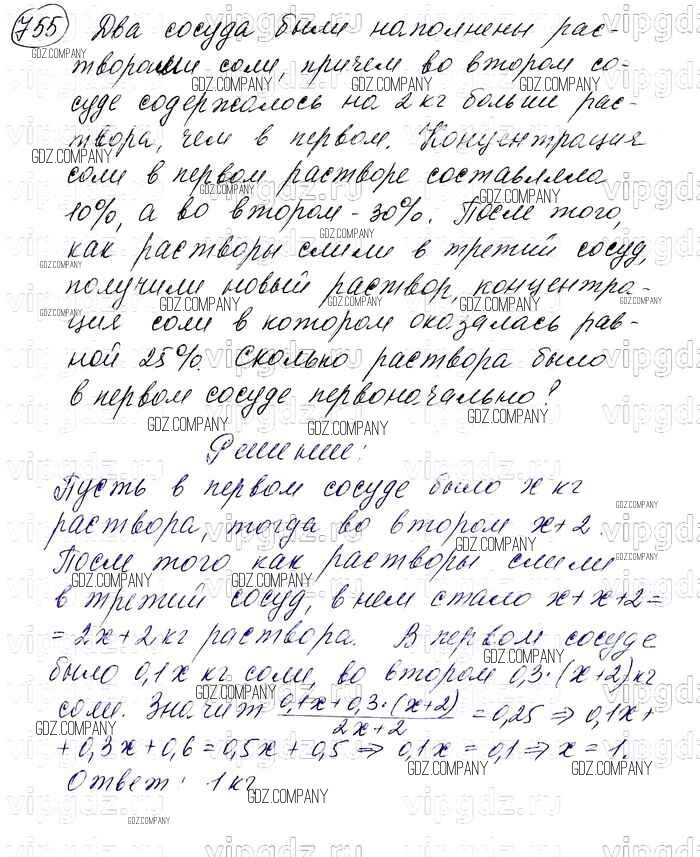 755 Два сосуда были наполнены рас-
творами соли, причем во втором со-
суде содержалось на 2 кг больше рас-
твора, чем в первом. Концентрация
соли в первом растворе составляла
10%, а во втором - 30%. После того,
как растворы слили в третий сосуд,
получили новый раствор, концентра-
ция соли в котором оказалась рав-
ной 25%. Сколько раствора было
в первом сосуде первоначально?
Решение:
Пусть в первом сосуде было x кг
раствора, тогда во втором x+2.
После того как растворы слили
в третий сосуд, в нем стало x+x+2=
=2x+2 кг раствора. В первом сосуде
было 0,1x кг соли, во втором 0,3·(x+2) кг
соли. Значит (0,1x+0,3·(x+2))/(2x+2) = 0,25 ⇒ 0,1x+
+0,3x+0,6=0,5x+0,5 ⇒ 0,1x=0,1 ⇒ x=1.
Ответ: 1 кг
GDZ.COMPANY
vipgdz.ru